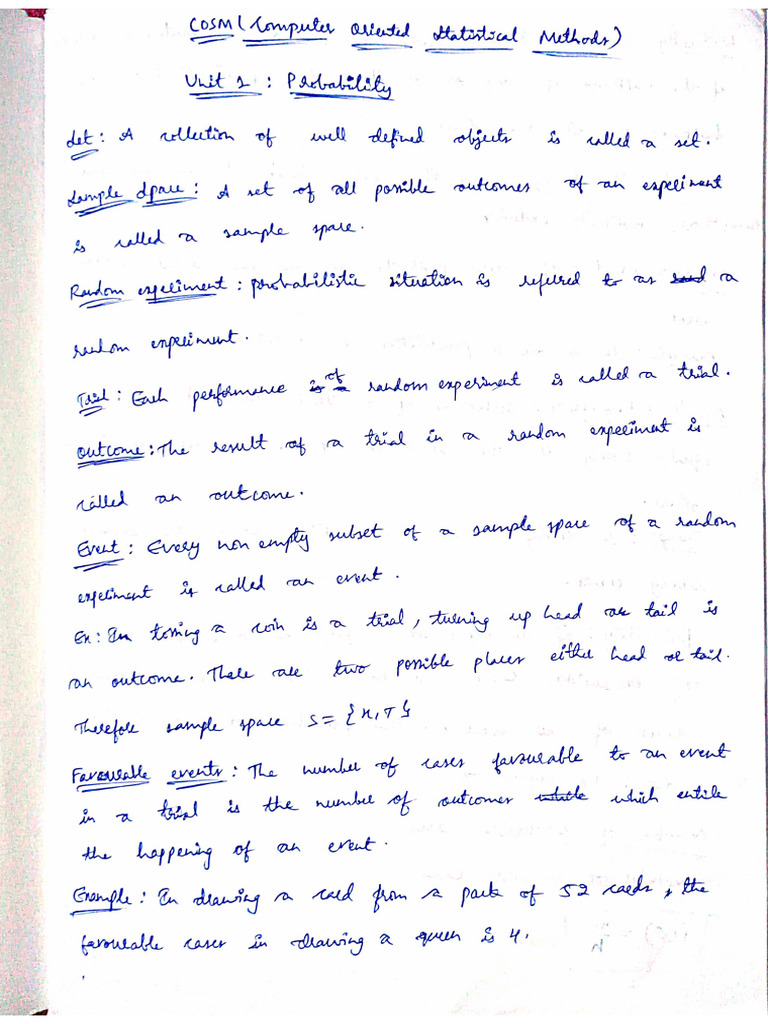 COSM (Computer Oriented Statistical Methods)
Unit 1 : Probability
Set : A collection of well defined objects is called a set.
Sample Space : A set of all possible outcomes of an expeliment
is called a sample space.
Random expeliment : probabilistic situation is refered to as a
random expeliment.
Trial : Each performance of random experiment is called a trial.
Outcome : The result of a trial in a random expeliment is
called an outcome.
Event : Every non empty subset of a sample space of a random
expeliment is called an event.
Ex : In tossing a coin is a trial, turning up head or tail is
an outcome. There are two possible places either head or tail.
Therefore sample space S = {H, T}
Favourable events : The number of cases favourable to an event
in a trial is the number of outcomes which entile
the happening of an event.
Example : In drawing a card from a pack of 52 cards, the
favourable cases in drawing a queen is 4.